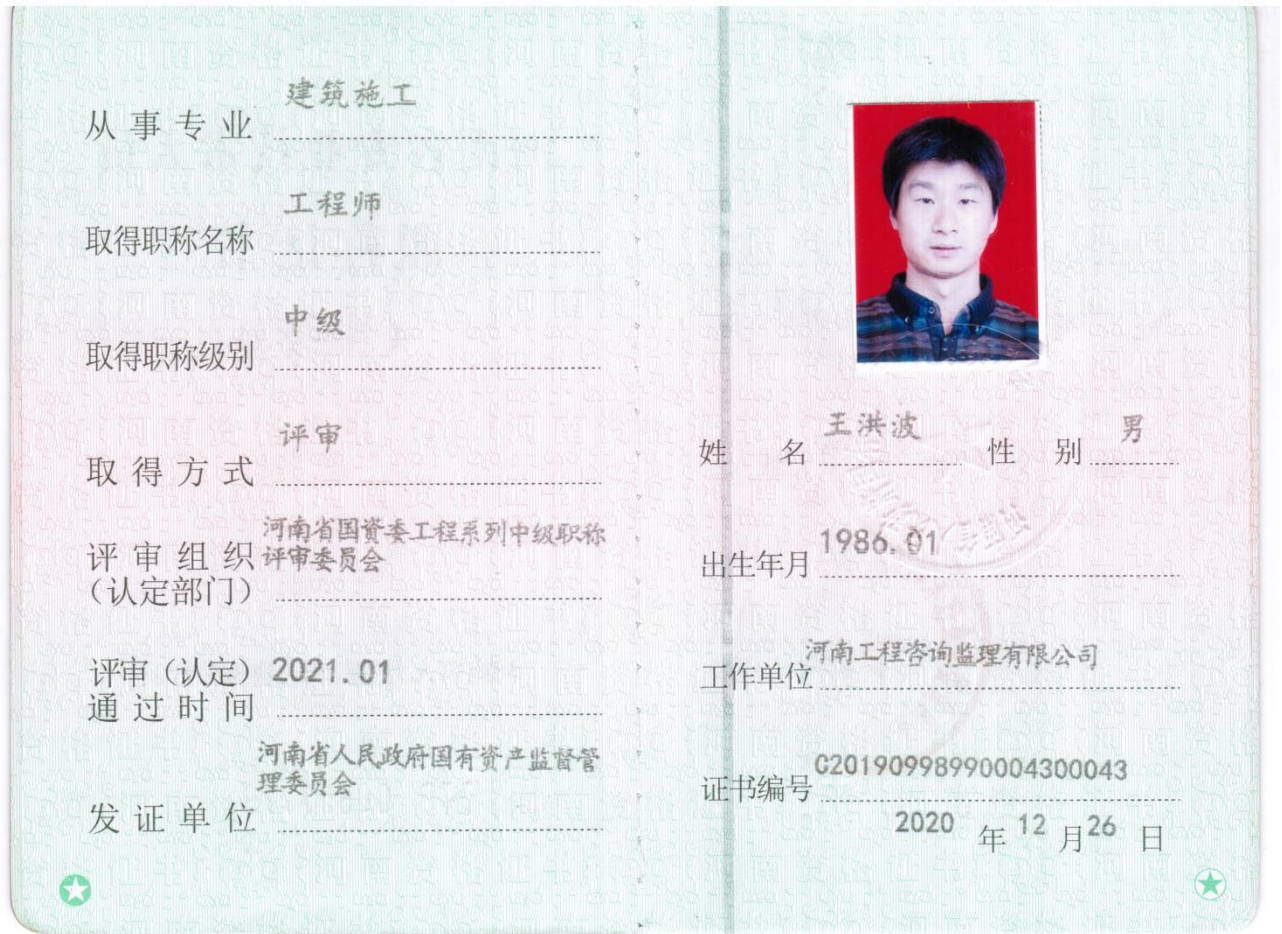 从事专业 建筑施工
取得职称名称 工程师
取得职称级别 中级
取得方式 评审
评审组织 河南省国资委工程系列中级职称
（认定部门） 评审委员会
评审（认定） 2021.01
通过时间
发证单位 河南省人民政府国有资产监督管
理委员会
姓名 王洪波 性别 男
出生年月 1986.01
工作单位 河南工程咨询监理有限公司
证书编号 C20190998990004300043
2020 年 12 月 26 日